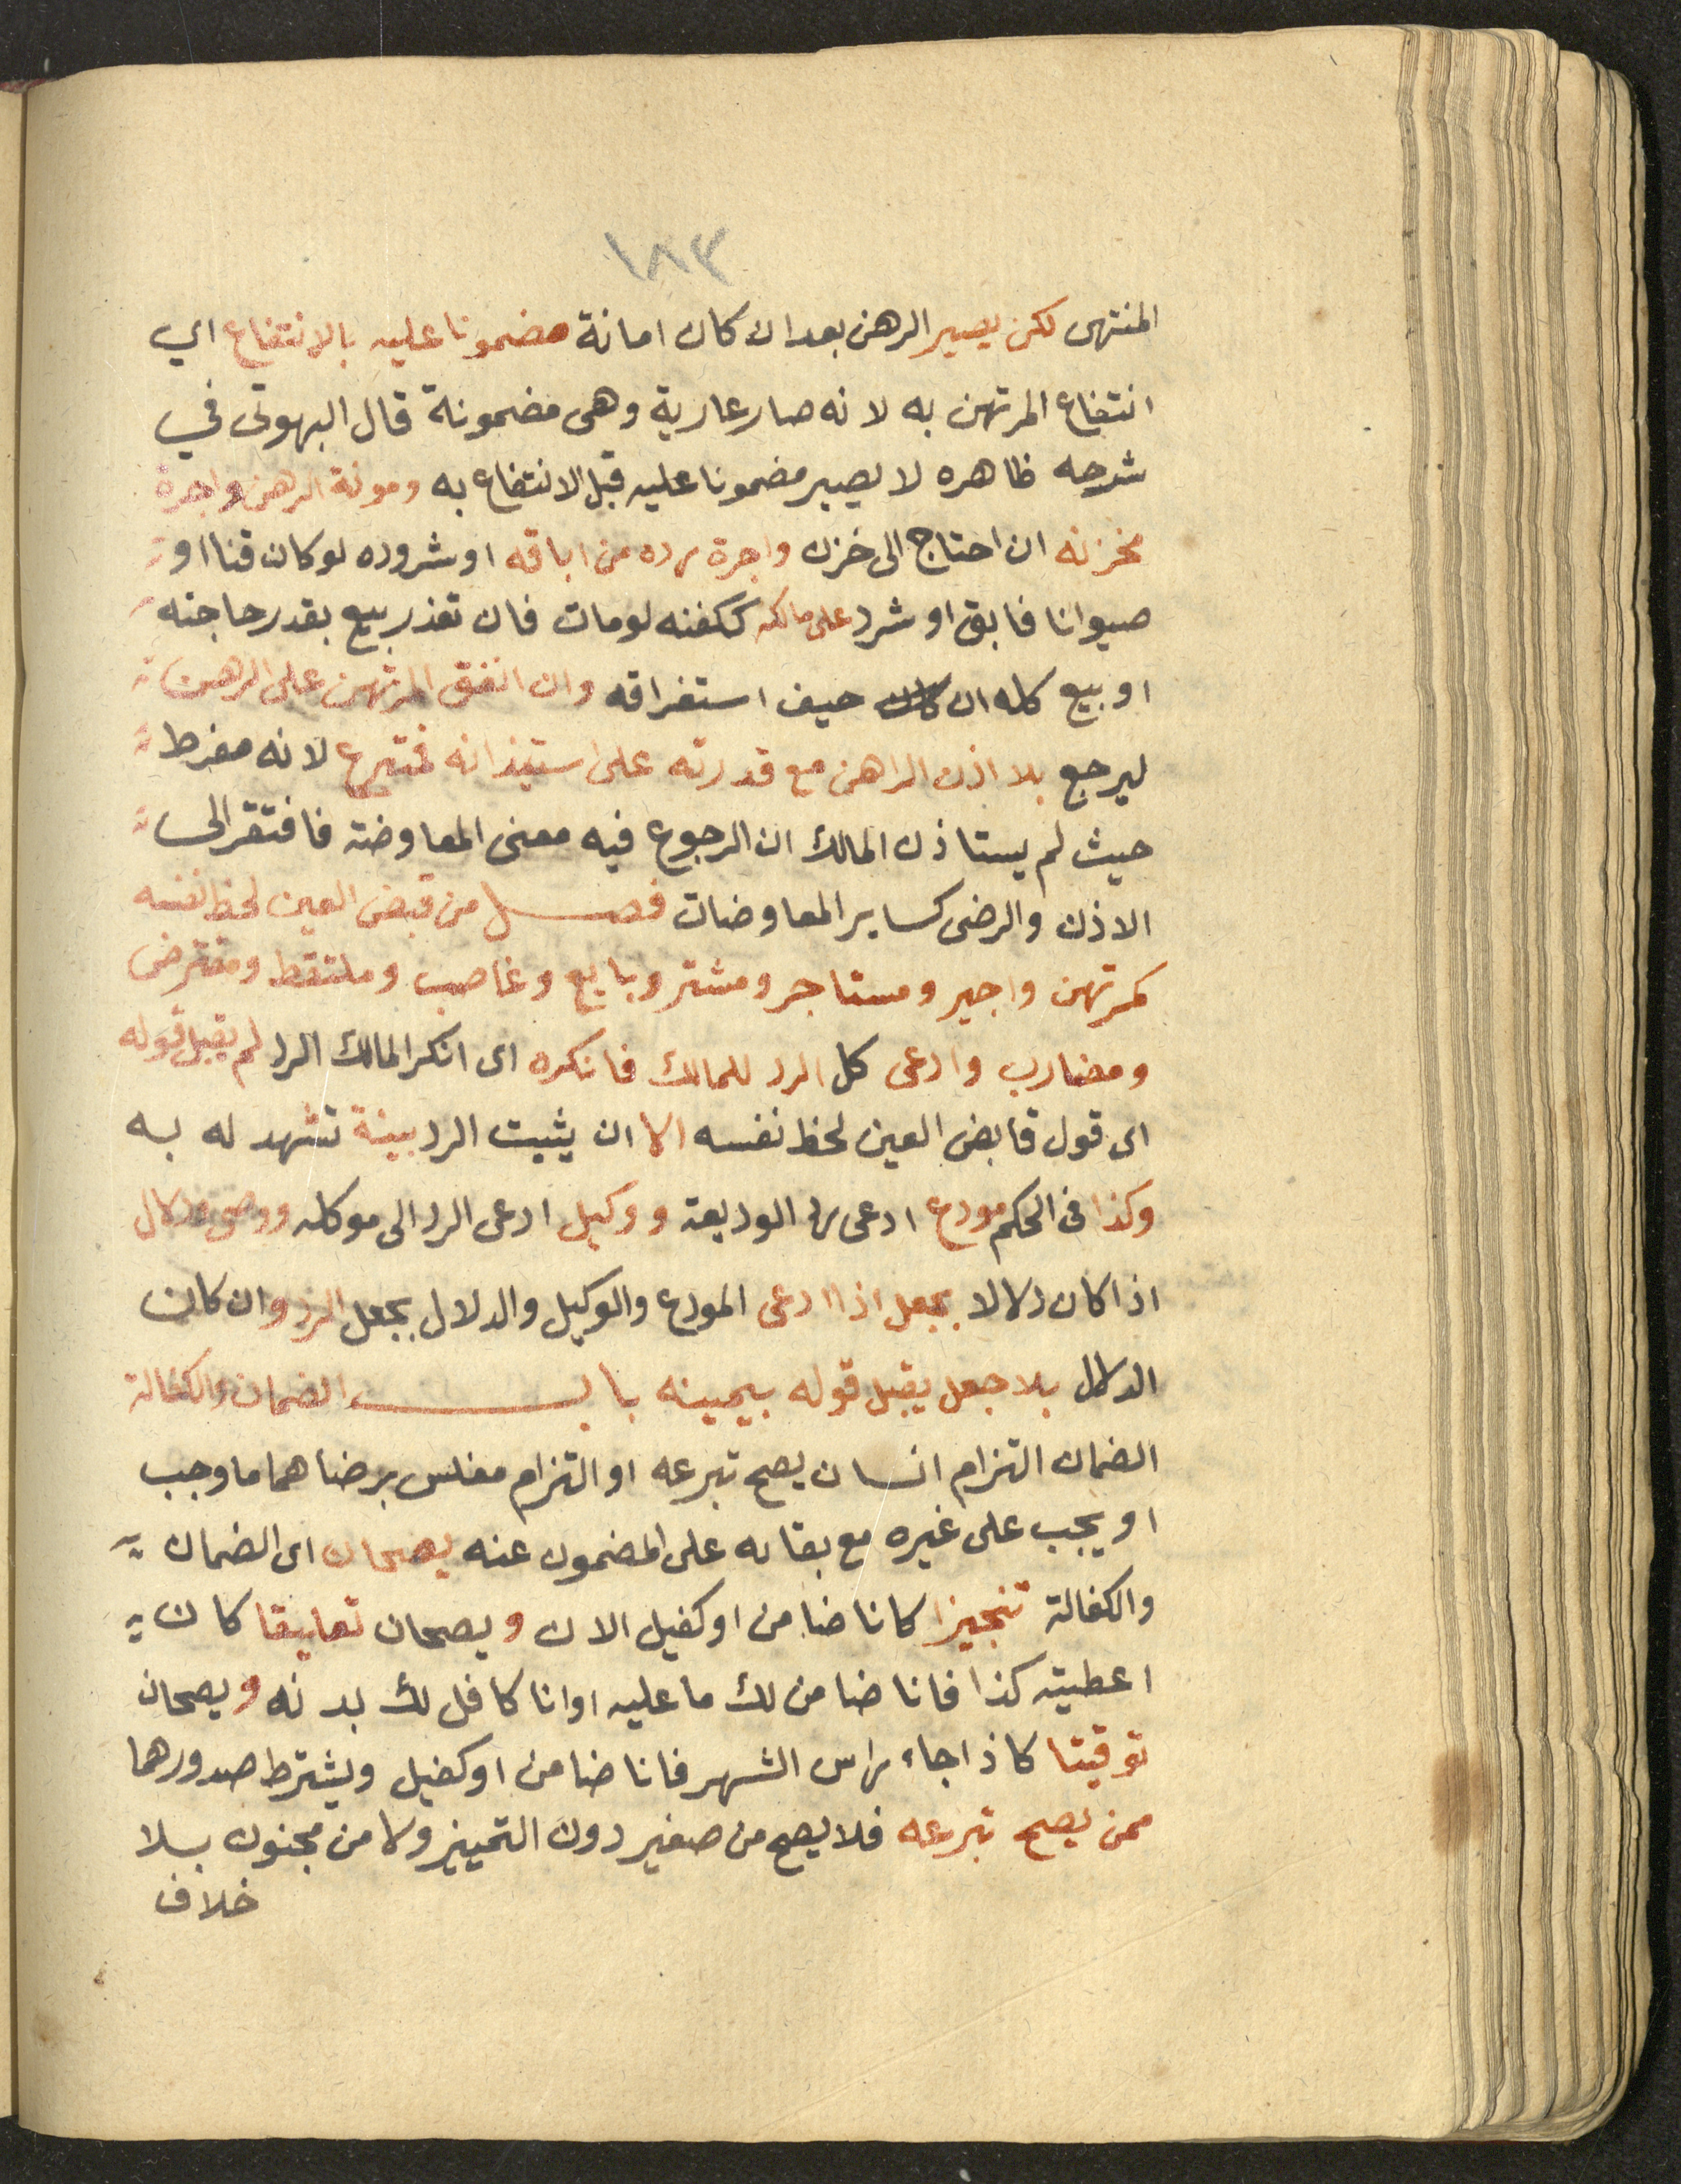 ١٨٣
المنتهى لكن يصير الرهن بعد ان كان امانة مضمونا عليه بالانتفاع اي
انتفاع المرتهن به لانه صار عارية وهى مضمونة قال البهوتى في
شرحه ظاهره لا يصير مضمونا عليه قبل الانتفاع به ومونة الرهن واجرة
مخزنه ان احتاج الى خزن واجرة رده من اباقه او شروده لو كان قنا او
حيوانا فابق او شرد على مالكه ككفنه لو مات فان تعذر بيع بقدر حاجته
او بيع كله ان خيف استغراقه وان انفق المرتهن على الرهن
ليرجع بلا اذن الراهن مع قدرته على استيذانه فمتبرع لانه مفرط
حيث لم يستاذن المالك ان الرجوع فيه معنى المعاوضة فافتقر الى
الاذن والرضى كساير المعاوضات فصل من قبض العين لحظ نفسه
كمرتهن واجير ومستاجر ومشتر وبايع وغاصب وملتقط ومقترض
ومضارب وادعى كل الرد للمالك فانكره اى انكر المالك الرد لم يقبل قوله
اى قول قابض العين لحظ نفسه الا ان يثبت الرد ببينة تشهد له به
وكذا فى الحكم مودع ادعى رد الوديعة ووكيل ادعى الرد الى موكله ووصى ودلال
اذا كان دلالا بجعل اذا ادعى المودع والوكيل والدلال بجعل الرد وان كان
الدلال بلا جعل يقبل قوله بيمينه باب الضمان والكفالة
الضمان التزام انسان يصح تبرعه او التزام مفلس برضاهما ما وجب
او يجب على غيره مع بقائه على المضمون عنه يصحان اى الضمان
والكفالة تنجيزا كانا ضامن او كفيل الان ويصحان تعليقا كان
اعطيته كذا فانا ضامن لك ما عليه او انا كافل لك بدنه ويصحان
توقيتا كاذا جاء راس الشهر فانا ضامن او كفيل ويشترط صدورهما
ممن يصح تبرعه فلا يصح من صغير دون التمييز ولا من مجنون بلا
خلاف